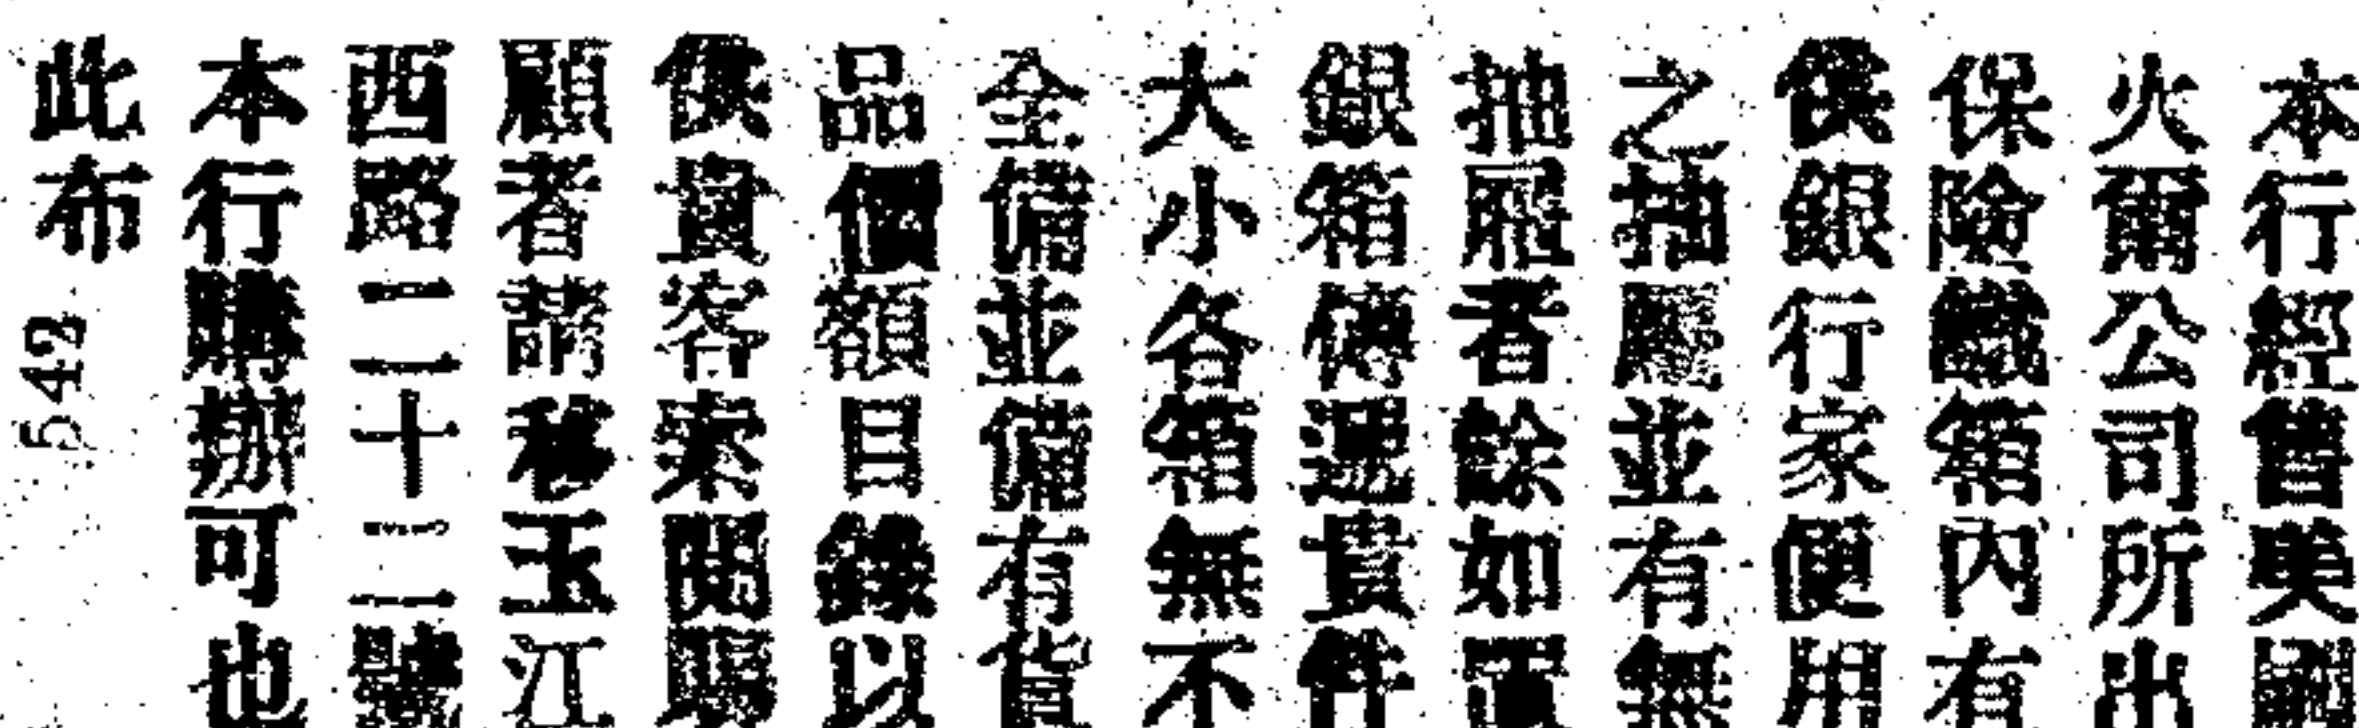 本行經售美國
火爾公司所出
保險鐵箱內有
供銀行家便用
之抽屜並有無
抽屜者餘如置
銀箱傳遞貴件
大小各箱無不
全備並備有貨
品價額目錄以
供貴客索閱賜
顧者請移玉江
西路二十二號
本行購辦可也
此布
542